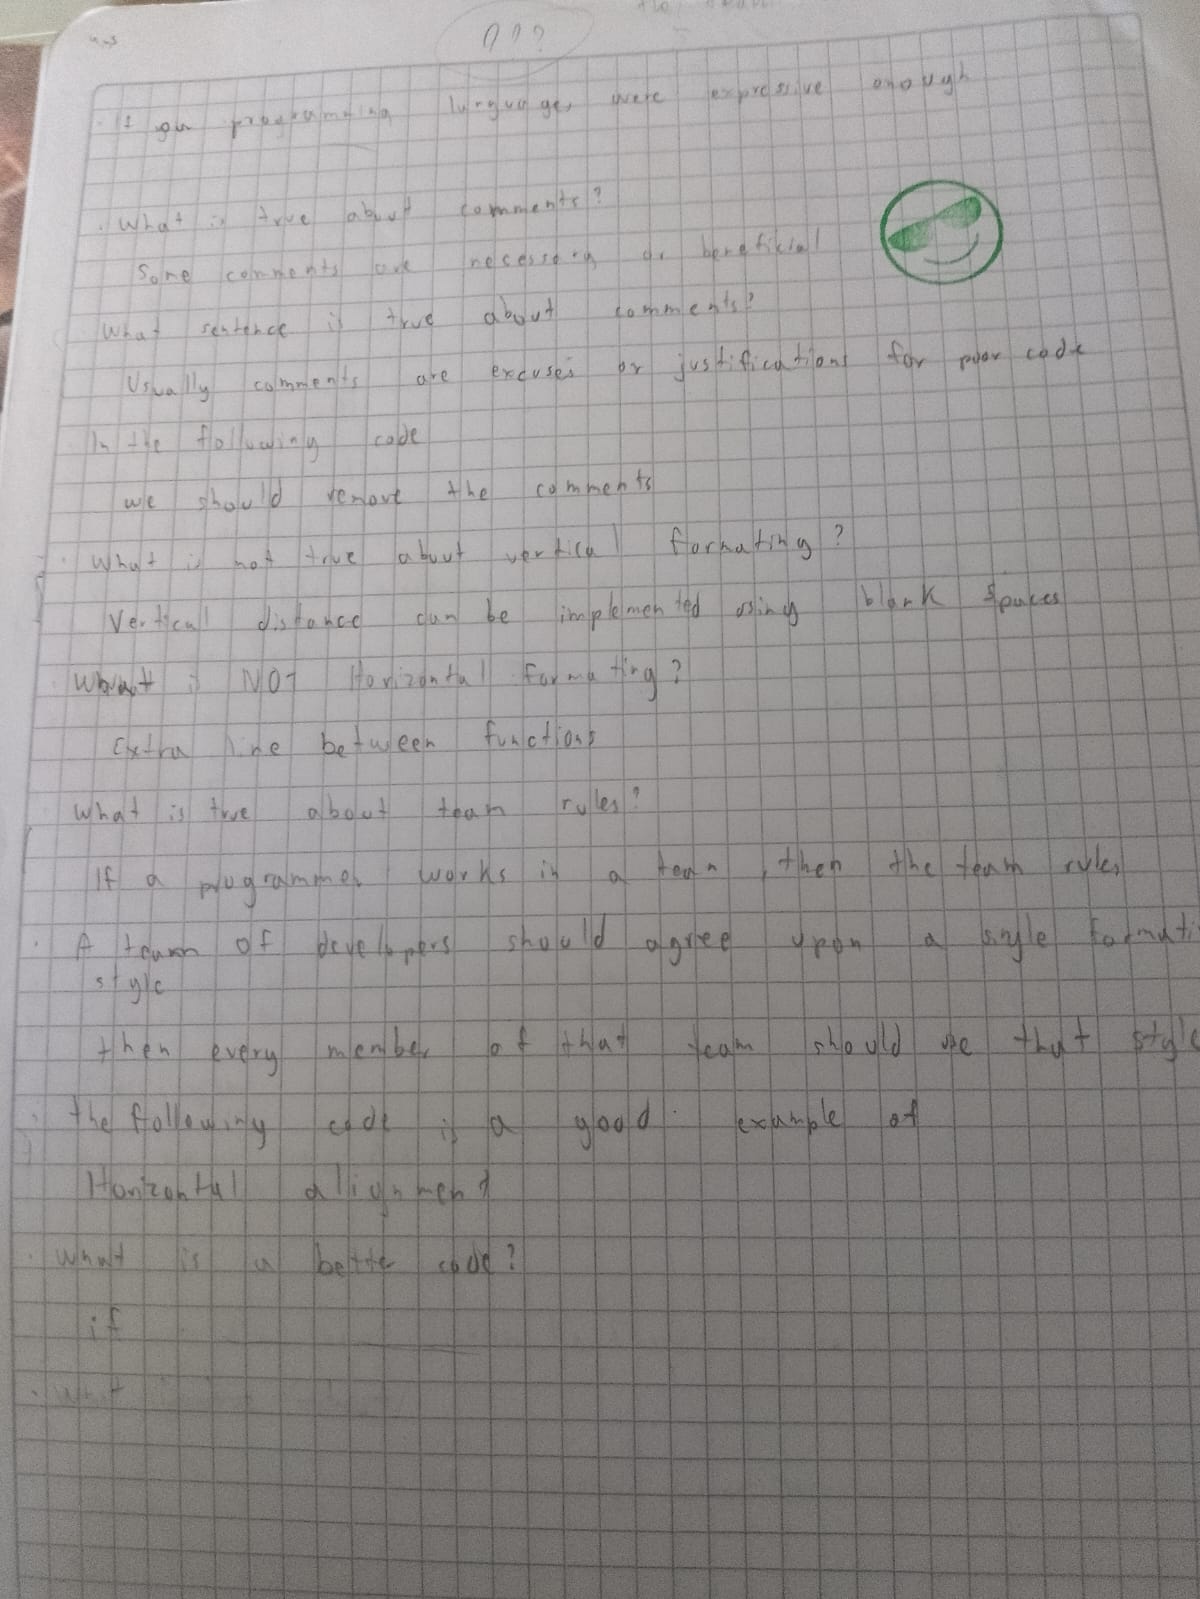 ???
I our programming languages were expressive enough
What is true about comments?
Some comments are necessary or beneficial
What sentence is true about comments?
Usually comments are excuses or justifications for poor code
In the following code
we should remove the comments
What is not true about vertical formating?
Vertical distance can be implemented using blank spaces
What is NOT Horizontal formating?
Extra line between functions
What is true about team rules?
If a programmer works in a team, then the team rules
A team of developers should agree upon a single formati
style
then every member of that team should use that style
the following code is a good example of
Horizontal allignment
What is a better code?
if